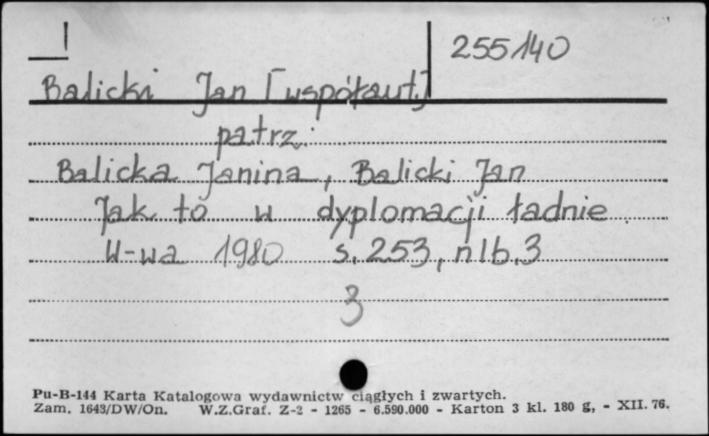 255140
Balicki Jan [współaut]
patrz:
Balicka Janina, Balicki Jan
Jak to w dyplomacji ładnie
W-wa 1980 s. 253, nlb. 3
3
Pu-B-144 Karta Katalogowa wydawnictw ciągłych i zwartych.
Zam. 1643/DW/On. W.Z.Graf. Z-2 - 1265 - 6.590.000 - Karton 3 kl. 180 g, - XII. 76.